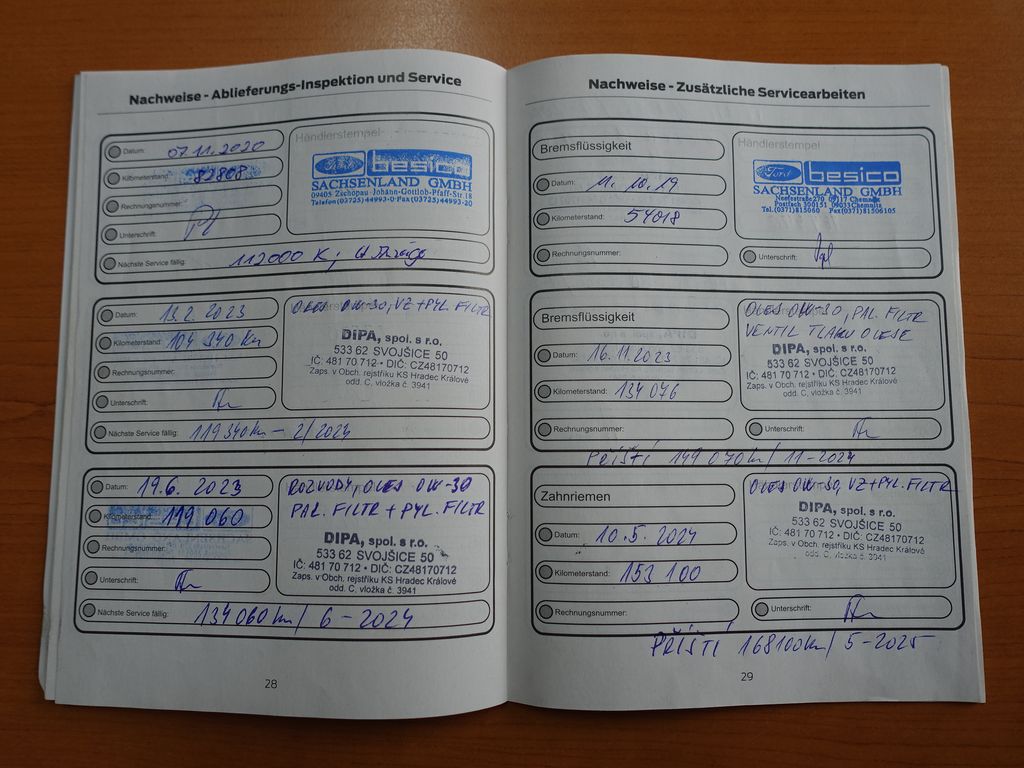 Nachweise - Ablieferungs-Inspektion und Service
Datum: 07.11.2020
Kilometerstand: 83808
Rechnungsnummer:
Unterschrift:
Händlerstempel
Ford besico
SACHSENLAND GMBH
09405 Zschopau·Johann-Gottlob-Pfaff-Str 18
Telefon (03725) 44993-0·Fax (03725) 44993-20
Nächste Service fällig: 112000 K;
Datum: 13.2. 2023
Kilometerstand: 104 340 km
Rechnungsnummer:
Unterschrift:
OLEJ 0W-30, VZ+PYL. FILTR
DIPA, spol. s r.o.
533 62 SVOJŠICE 50
IČ: 481 70 712 • DIČ: CZ48170712
Zaps. v Obch. rejstříku KS Hradec Králové
odd. C, vložka č. 3941
Nächste Service fällig: 119340km - 2/2024
Datum: 19.6. 2023
Kilometerstand: 119 060
Rechnungsnummer:
Unterschrift:
ROZVODY, OLEJ 0W-30
PAL. FILTR + PYL. FILTR
DIPA, spol. s r.o.
533 62 SVOJŠICE 50
IČ: 481 70 712 • DIČ: CZ48170712
Zaps. v Obch. rejstříku KS Hradec Králové
odd. C, vložka č. 3941
Nächste Service fällig: 134060km/ 6 - 2024
28
Nachweise - Zusätzliche Servicearbeiten
Bremsflüssigkeit
Datum: 11. 10. 19
Kilometerstand: 54018
Rechnungsnummer:
Händlerstempel
Ford besico
SACHSENLAND GMBH
Neefestraße 270 09117 Chemnitz
Postfach 300151 09033 Chemnitz
Tel.(0371)815060 Fax(0371)81506105
Unterschrift:
Bremsflüssigkeit
Datum: 16.11.2023
Kilometerstand: 134 076
Rechnungsnummer:
OLEJ 0W-30, PAL. FILTR
VENTIL TLAKU OLEJE
DIPA, spol. s r.o.
533 62 SVOJŠICE 50
IČ: 481 70 712 • DIČ: CZ48170712
Zaps. v Obch. rejstříku KS Hradec Králové
odd. C, vložka č. 3941
Unterschrift:
PŘÍŠTÍ 149 070km/ 11-2024
Zahnriemen
Datum: 10.5. 2024
Kilometerstand: 153 100
Rechnungsnummer:
OLEJ 0W-30, VZ+PYL. FILTR
DIPA, spol. s r.o.
533 62 SVOJŠICE 50
IČ: 481 70 712 • DIČ: CZ48170712
Zaps. v Obch. rejstříku KS Hradec Králové
odd. C, vložka č. 3941
Unterschrift:
PŘÍŠTÍ 168100km/ 5-2025
29